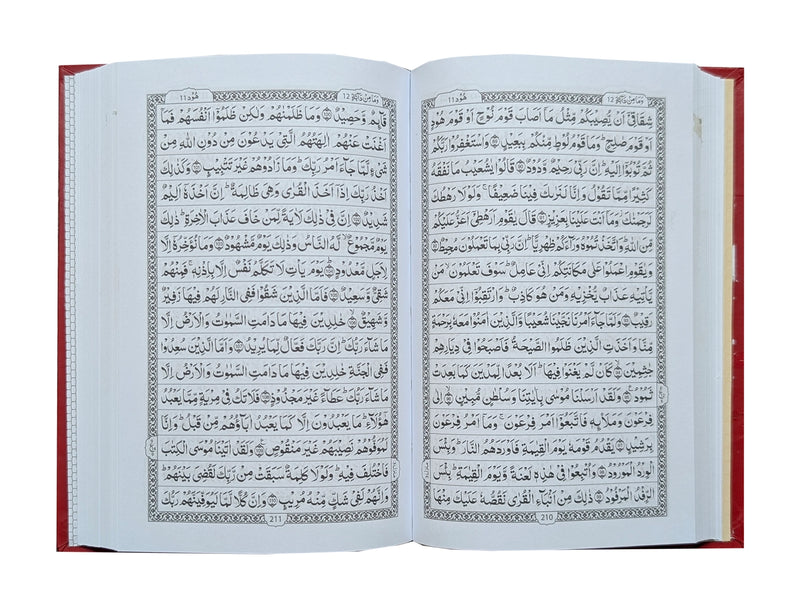 وَمَا مِنْ دَآبَّةٍ 12 هُوْد 11
شِقَاقِیْۤ اَنْ یُّصِیْبَكُمْ مِّثْلُ مَاۤ اَصَابَ قَوْمَ نُوْحٍ اَوْ قَوْمَ هُوْدٍ
اَوْ قَوْمَ صٰلِحٍ ؕ وَمَا قَوْمُ لُوْطٍ مِّنْكُمْ بِبَعِیْدٍ ۝ وَاسْتَغْفِرُوْا رَبَّكُمْ
ثُمَّ تُوْبُوْۤا اِلَیْهِ ؕ اِنَّ رَبِّیْ رَحِیْمٌ وَّدُوْدٌ ۝ قَالُوْا یٰشُعَیْبُ مَا نَفْقَهُ
كَثِیْرًا مِّمَّا تَقُوْلُ وَاِنَّا لَنَرٰىكَ فِیْنَا ضَعِیْفًا ۚ وَلَوْلَا رَهْطُكَ
لَرَجَمْنٰكَ ؗ وَمَاۤ اَنْتَ عَلَیْنَا بِعَزِیْزٍ ۝ قَالَ یٰقَوْمِ اَرَهْطِیْۤ اَعَزُّ عَلَیْكُمْ
مِّنَ اللّٰهِ ؕ وَاتَّخَذْتُمُوْهُ وَرَآءَكُمْ ظِهْرِیًّا ؕ اِنَّ رَبِّیْ بِمَا تَعْمَلُوْنَ مُحِیْطٌ ۝
وَیٰقَوْمِ اعْمَلُوْا عَلٰی مَكَانَتِكُمْ اِنِّیْ عَامِلٌ ؕ سَوْفَ تَعْلَمُوْنَ ۙ مَنْ
یَّاْتِیْهِ عَذَابٌ یُّخْزِیْهِ وَمَنْ هُوَ كَاذِبٌ ؕ وَارْتَقِبُوْۤا اِنِّیْ مَعَكُمْ
رَقِیْبٌ ۝ وَلَمَّا جَآءَ اَمْرُنَا نَجَّیْنَا شُعَیْبًا وَّالَّذِیْنَ اٰمَنُوْا مَعَهٗ بِرَحْمَةٍ
مِّنَّا وَاَخَذَتِ الَّذِیْنَ ظَلَمُوا الصَّیْحَةُ فَاَصْبَحُوْا فِیْ دِیَارِهِمْ
جٰثِمِیْنَ ۝ كَاَنْ لَّمْ یَغْنَوْا فِیْهَا ؕ اَلَا بُعْدًا لِّمَدْیَنَ كَمَا بَعِدَتْ
ثَمُوْدُ ۝ وَلَقَدْ اَرْسَلْنَا مُوْسٰی بِاٰیٰتِنَا وَسُلْطٰنٍ مُّبِیْنٍ ۝ اِلٰی
فِرْعَوْنَ وَمَلَا۟ئِهٖ فَاتَّبَعُوْۤا اَمْرَ فِرْعَوْنَ ۚ وَمَاۤ اَمْرُ فِرْعَوْنَ
بِرَشِیْدٍ ۝ یَقْدُمُ قَوْمَهٗ یَوْمَ الْقِیٰمَةِ فَاَوْرَدَهُمُ النَّارَ ؕ وَبِئْسَ
الْوِرْدُ الْمَوْرُوْدُ ۝ وَاُتْبِعُوْا فِیْ هٰذِهٖ لَعْنَةً وَّیَوْمَ الْقِیٰمَةِ ؕ بِئْسَ
الرِّفْدُ الْمَرْفُوْدُ ۝ ذٰلِكَ مِنْ اَنْۢبَآءِ الْقُرٰی نَقُصُّهٗ عَلَیْكَ مِنْهَا
210
وَمَا مِنْ دَآبَّةٍ 12 هُوْد 11
قَآئِمٌ وَّحَصِیْدٌ ۝ وَمَا ظَلَمْنٰهُمْ وَلٰكِنْ ظَلَمُوْۤا اَنْفُسَهُمْ فَمَاۤ
اَغْنَتْ عَنْهُمْ اٰلِهَتُهُمُ الَّتِیْ یَدْعُوْنَ مِنْ دُوْنِ اللّٰهِ مِنْ
شَیْءٍ لَّمَّا جَآءَ اَمْرُ رَبِّكَ ؕ وَمَا زَادُوْهُمْ غَیْرَ تَتْبِیْبٍ ۝ وَكَذٰلِكَ
اَخْذُ رَبِّكَ اِذَاۤ اَخَذَ الْقُرٰی وَهِیَ ظَالِمَةٌ ؕ اِنَّ اَخْذَهٗۤ اَلِیْمٌ
شَدِیْدٌ ۝ اِنَّ فِیْ ذٰلِكَ لَاٰیَةً لِّمَنْ خَافَ عَذَابَ الْاٰخِرَةِ ؕ ذٰلِكَ
یَوْمٌ مَّجْمُوْعٌ ۙ لَّهُ النَّاسُ وَذٰلِكَ یَوْمٌ مَّشْهُوْدٌ ۝ وَمَا نُؤَخِّرُهٗۤ اِلَّا
لِاَجَلٍ مَّعْدُوْدٍ ۝ یَوْمَ یَاْتِ لَا تَكَلَّمُ نَفْسٌ اِلَّا بِاِذْنِهٖ ۚ فَمِنْهُمْ
شَقِیٌّ وَّسَعِیْدٌ ۝ فَاَمَّا الَّذِیْنَ شَقُوْا فَفِی النَّارِ لَهُمْ فِیْهَا زَفِیْرٌ
وَّشَهِیْقٌ ۝ خٰلِدِیْنَ فِیْهَا مَا دَامَتِ السَّمٰوٰتُ وَالْاَرْضُ اِلَّا
مَا شَآءَ رَبُّكَ ؕ اِنَّ رَبَّكَ فَعَّالٌ لِّمَا یُرِیْدُ ۝ وَاَمَّا الَّذِیْنَ سُعِدُوْا
فَفِی الْجَنَّةِ خٰلِدِیْنَ فِیْهَا مَا دَامَتِ السَّمٰوٰتُ وَالْاَرْضُ اِلَّا
مَا شَآءَ رَبُّكَ ؕ عَطَآءً غَیْرَ مَجْذُوْذٍ ۝ فَلَا تَكُ فِیْ مِرْیَةٍ مِّمَّا یَعْبُدُ
هٰۤؤُلَآءِ ؕ مَا یَعْبُدُوْنَ اِلَّا كَمَا یَعْبُدُ اٰبَآؤُهُمْ مِّنْ قَبْلُ ؕ وَاِنَّا
لَمُوَفُّوْهُمْ نَصِیْبَهُمْ غَیْرَ مَنْقُوْصٍ ۝ وَلَقَدْ اٰتَیْنَا مُوْسَی الْكِتٰبَ
فَاخْتُلِفَ فِیْهِ ؕ وَلَوْلَا كَلِمَةٌ سَبَقَتْ مِنْ رَّبِّكَ لَقُضِیَ بَیْنَهُمْ ؕ
وَاِنَّهُمْ لَفِیْ شَكٍّ مِّنْهُ مُرِیْبٍ ۝ وَاِنَّ كُلًّا لَّمَّا لَیُوَفِّیَنَّهُمْ رَبُّكَ
211